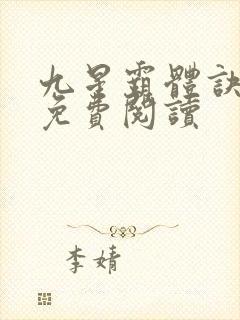 九星霸體訣
免費閱讀
李婧